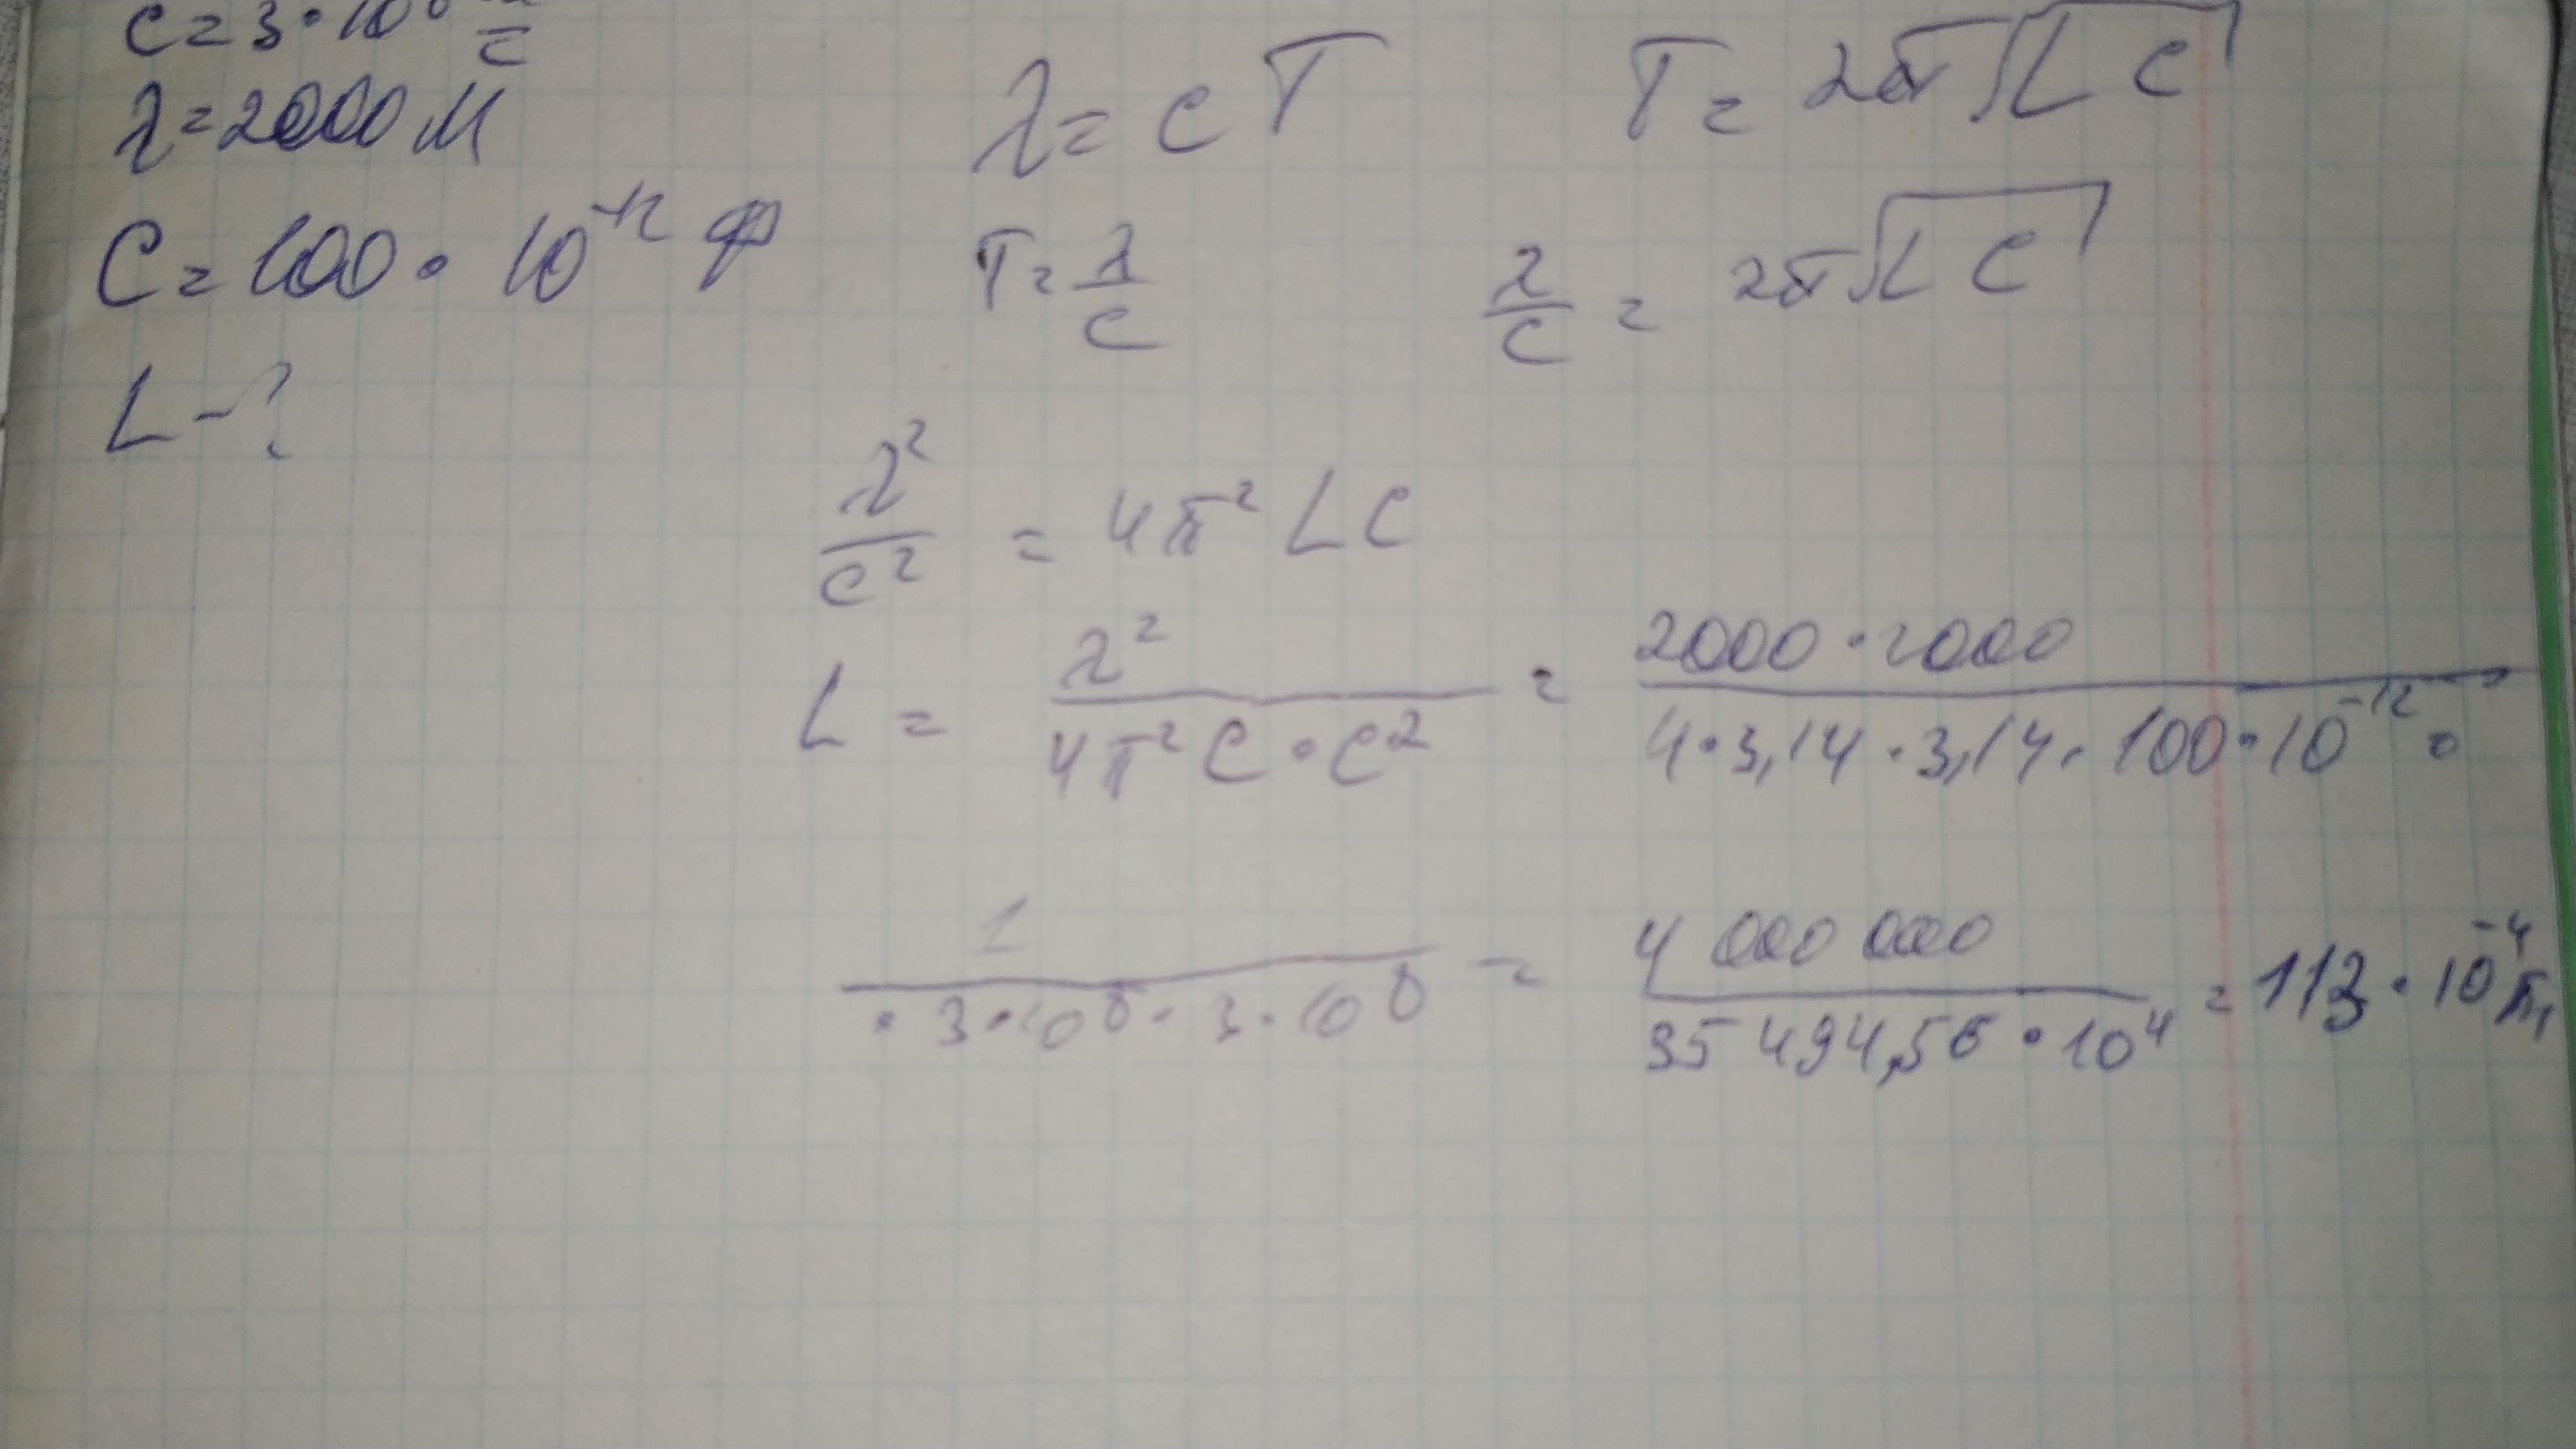 c = 3 · 10⁸ м/с
λ = 2000 м
C = 100 · 10⁻¹² Ф
L - ?
λ = c T
T = 2π√LC
T = λ/c
λ/c = 2π√LC
λ²/c² = 4π² LC
L = λ²/(4π² C · c²) = 2000 · 2000/(4 · 3,14 · 3,14 · 100 · 10⁻¹² ·
1/(· 3 · 10⁸ · 3 · 10⁸) = 4 000 000/(35 494,56 · 10⁴) = 113 · 10⁻⁴